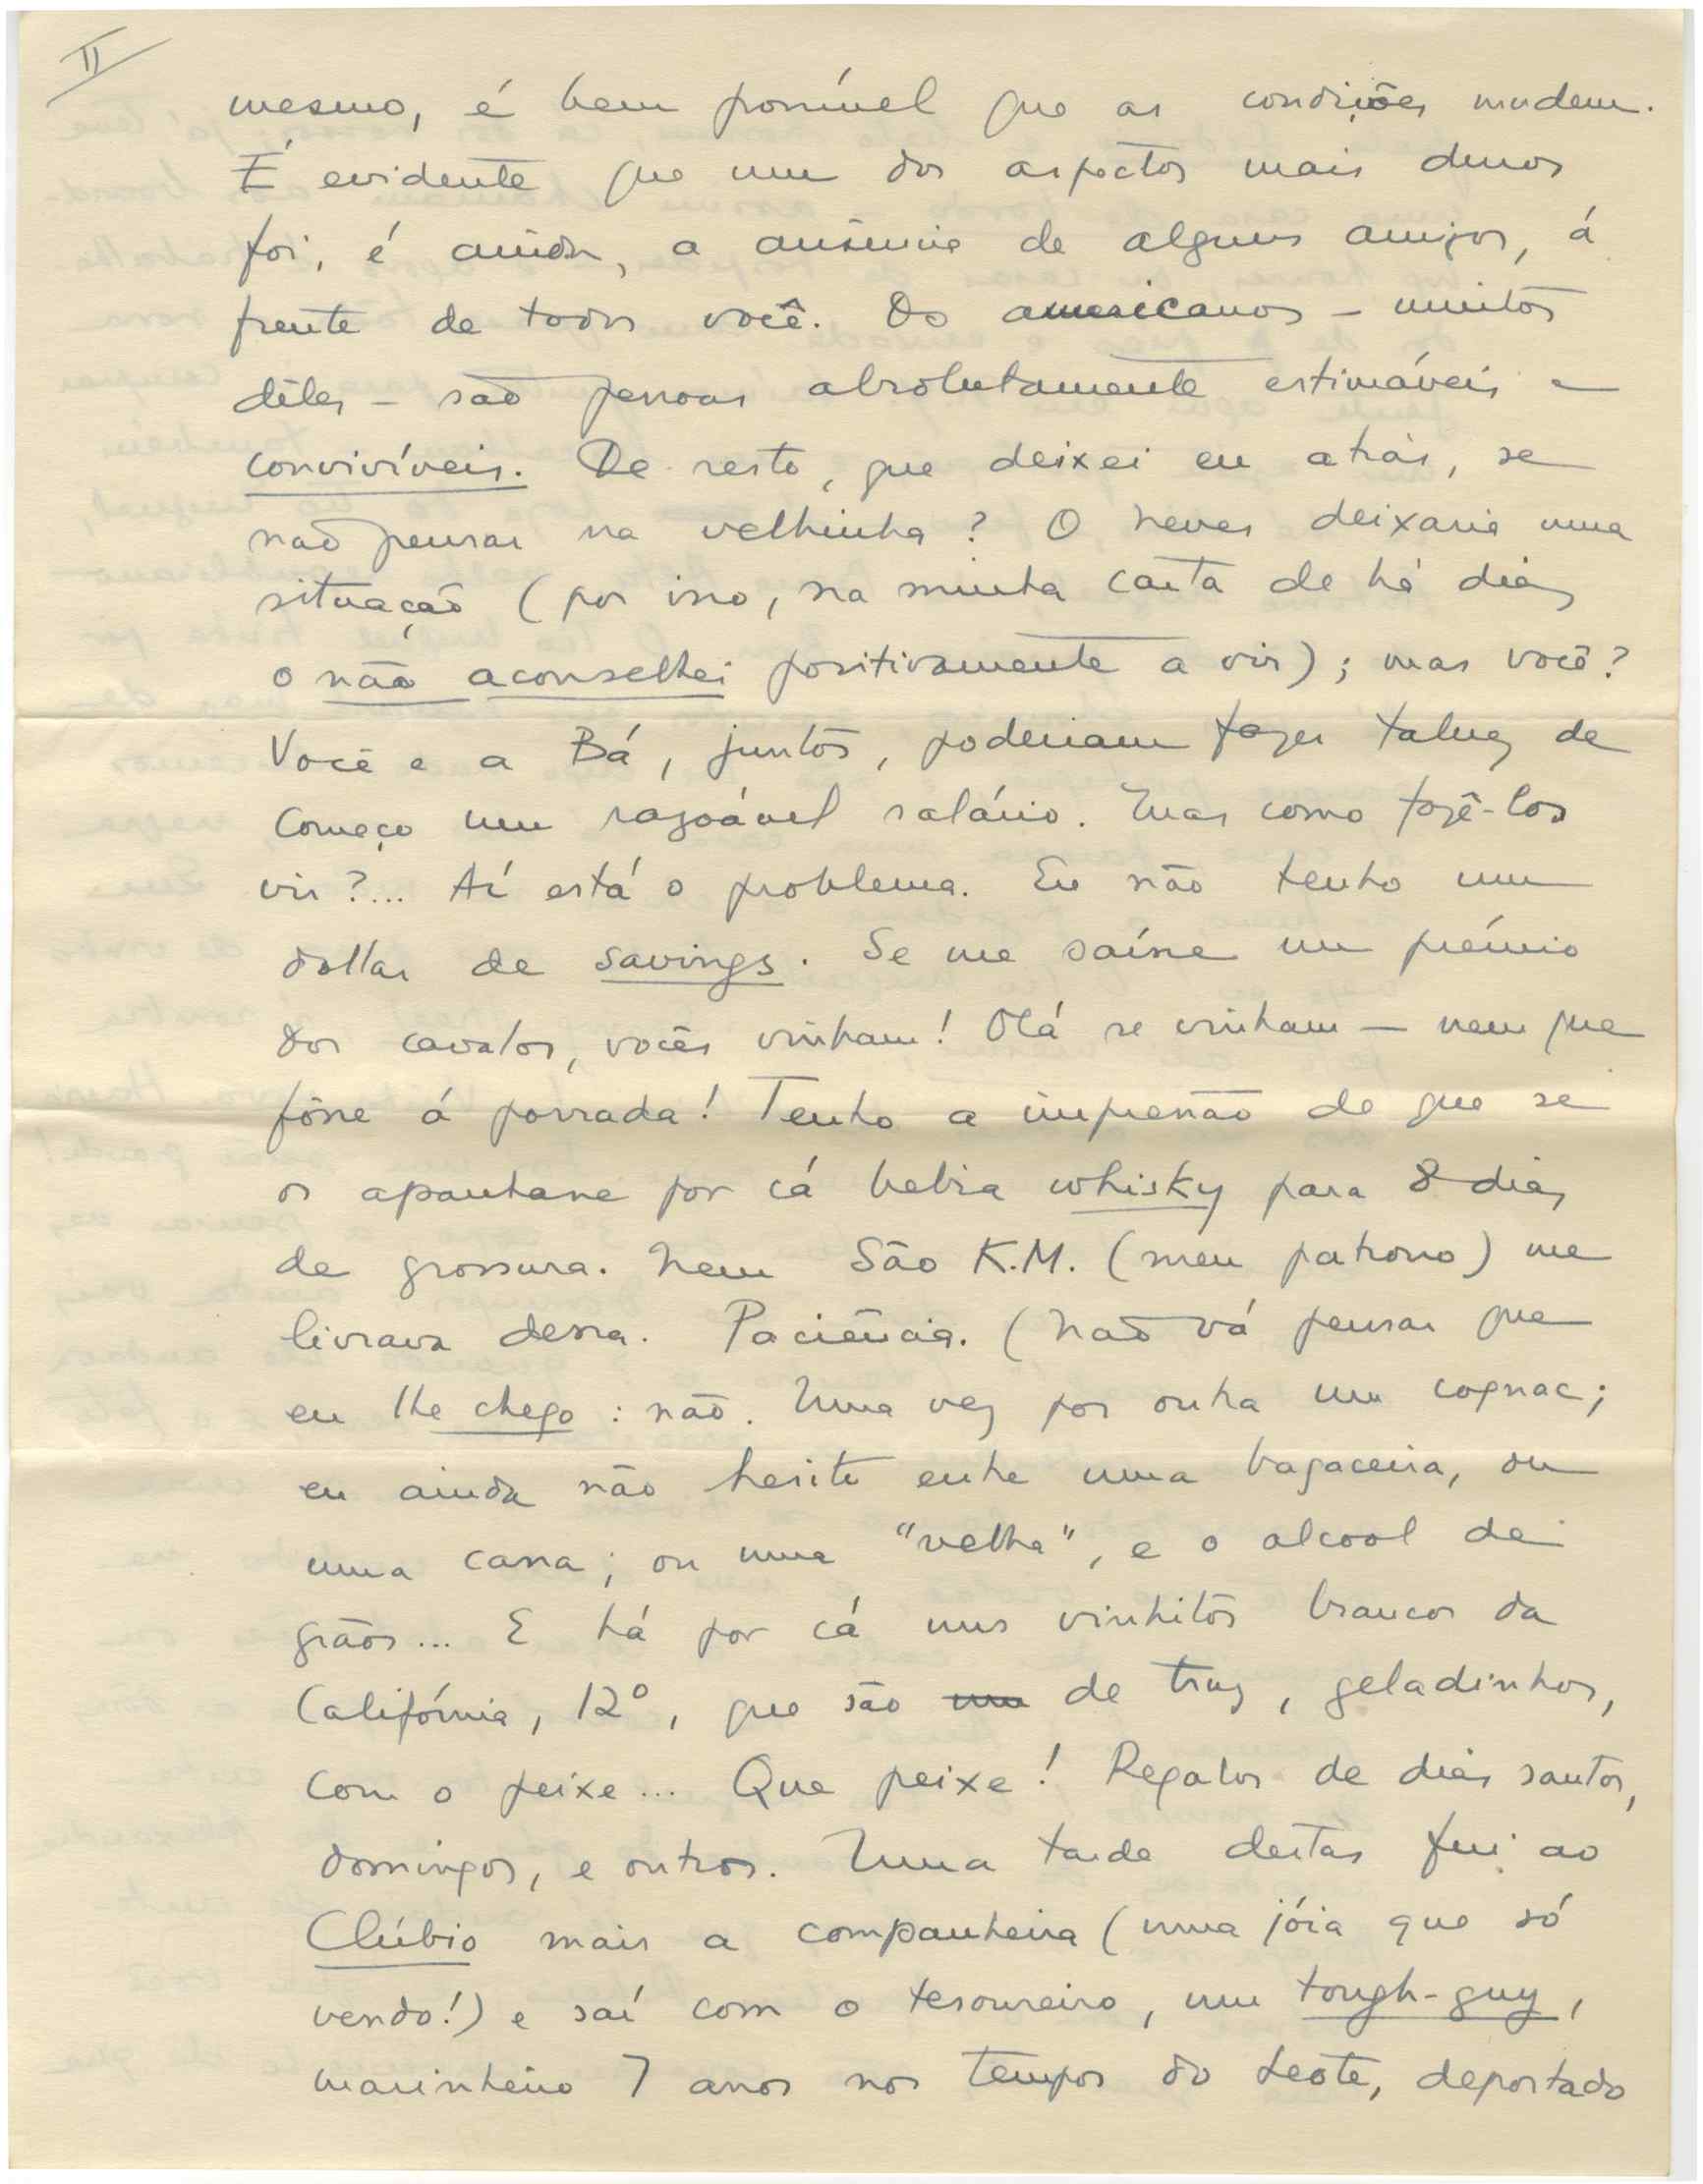 II
mesmo, é bem possível que as condições mudem.
É evidente que um dos aspectos mais duros
foi, é ainda, a ausência de alguns amigos, á
frente de todos você. Os americanos – muitos
dêles – são pessoas absolutamente estimáveis e
convivíveis. De resto, que deixei eu atrás, se
não pensar na velhinha? O Neves deixaria uma
situação (por isso, na minha carta de há dias
o não aconselhei positivamente a vir); mas você?
Você e a Bá, juntos, poderiam fazer talvez de
começo um razoável salário. Mas como fazê-los
vir?... Aí está o problema. Eu não tenho um
dollar de savings. Se me saísse um prémio
dos cavalos, vocês vinham! Olá se vinham – nem que
fôsse á porrada! Tenho a impressão de que se
os apanhasse por cá bebia whisky para 8 dias
de grossura. Nem São K.M. (meu patrono) me
livrava dessa. Paciência. (Não vá pensar que
eu lhe chego: não. Uma vez por outra um cognac;
eu ainda não hesito entre uma bagaceira, ou
uma cana; ou uma "velha", e o alcool de
grãos... E há por cá uns vinhitos brancos da
Califórnia, 12º, que são de truz, geladinhos,
com o peixe... Que peixe! Regalos de dias santos,
domingos, e outros. Uma tarde destas fui ao
Clúbio mais a companheira (uma jóia que só
vendo!) e saí com o tesoureiro, um tough-guy,
marinheiro 7 anos nos tempos do Leote, deportado